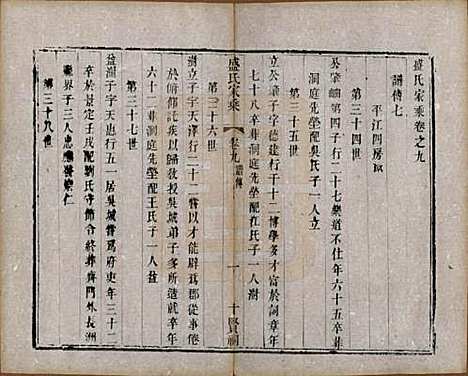 盛氏家乘卷之九
譜傳七
平江四房派
第三十四世
公肇嶹第四子行二十七樂道不仕年六十五卒葬
洞庭先塋配吳氏子一人立
第三十五世
立公肇子字德建行千十二博學多才富於詞章年
七十八卒葬洞庭先塋配任氏子一人澍
盛氏家乘
卷九 譜傳
一
十賢祠
第三十六世
澍立子字天澤行二十二嘗以才能辟爲郡從事倦
於俯仰託疾以歸敎授吳城弟子多所造就卒年
六十二葬洞庭先塋配王氏子一人益
第三十七世
益澍子字天惠行五一居吳城嘗爲府吏年三十二
卒於景定壬戌配劉氏守節令終葬齊門外長洲
界子三人忠應
第三十八世